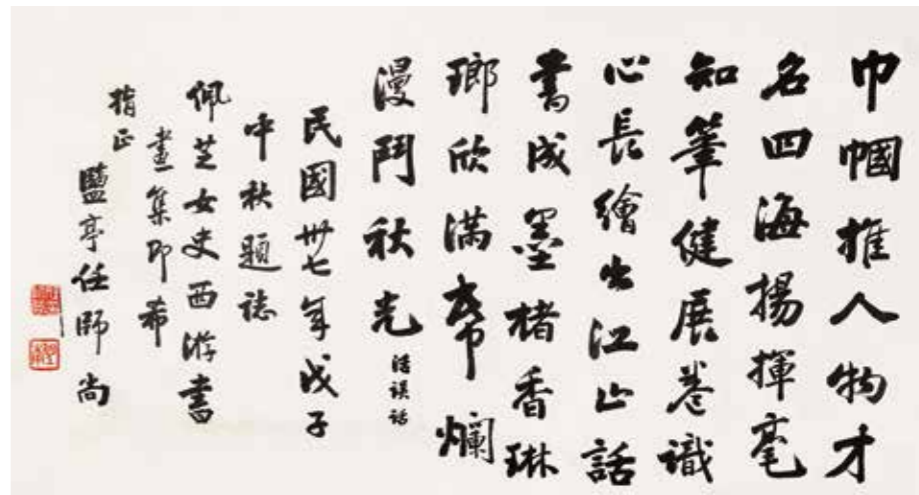 巾幗推人物才
名四海揚揮毫
知筆健展卷識
心長繪出江山話
書成墨楮香琳
瑯欣滿幕爛
漫鬥秋光 活誤話
民國卅七年戊子
中秋題誌
佩芝女史西游書
畫集即希
指正
藍亭任師尚